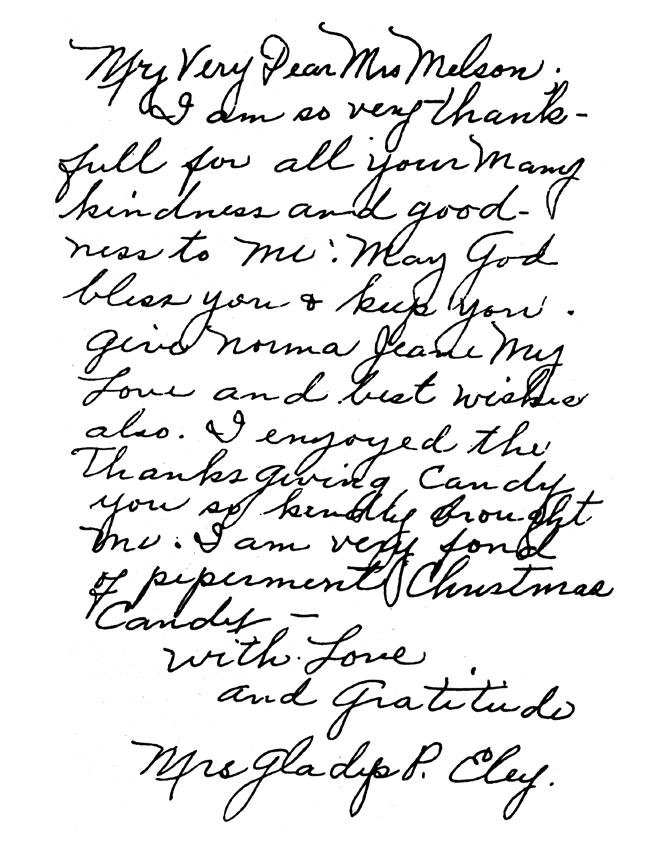 My Very Dear Mrs Melson.
I am so very thank-
full for all your Many
kindness and good-
ness to me: May God
bless you & keep you.
give Norma Jeane My
Love and best wishes
also. I enjoyed the
Thanksgiving Candy
you so kindly brought
me. I am very fond
of piperment Christmas
Candy —
with Love
and Gratitude
Mrs Gladys P. Eley.